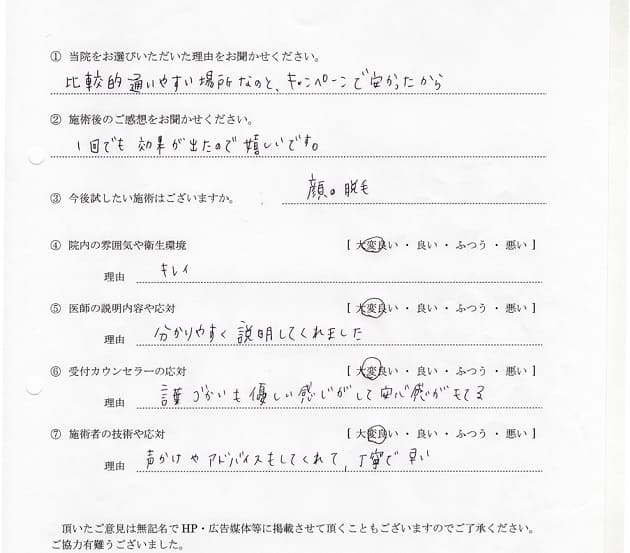 ① 当院をお選びいただいた理由をお聞かせください。
比較的通いやすい場所なのと、キャンペーンで安かったから
② 施術後のご感想をお聞かせください。
1回でも効果が出たので嬉しいです。
③ 今後試したい施術はございますか。 顔の脱毛
④ 院内の雰囲気や衛生環境 [ 大変良い ・ 良い ・ ふつう ・ 悪い ]
理由 キレイ
⑤ 医師の説明内容や応対 [ 大変良い ・ 良い ・ ふつう ・ 悪い ]
理由 分かりやすく説明してくれました
⑥ 受付カウンセラーの応対 [ 大変良い ・ 良い ・ ふつう ・ 悪い ]
理由 言葉づかいも優しい感じがして安心感がもてる
⑦ 施術者の技術や応対 [ 大変良い ・ 良い ・ ふつう ・ 悪い ]
理由 声かけやアドバイスもしてくれて、丁寧で早い
頂いたご意見は無記名でHP・広告媒体等に掲載させて頂くこともございますのでご了承ください。
ご協力有難うございました。